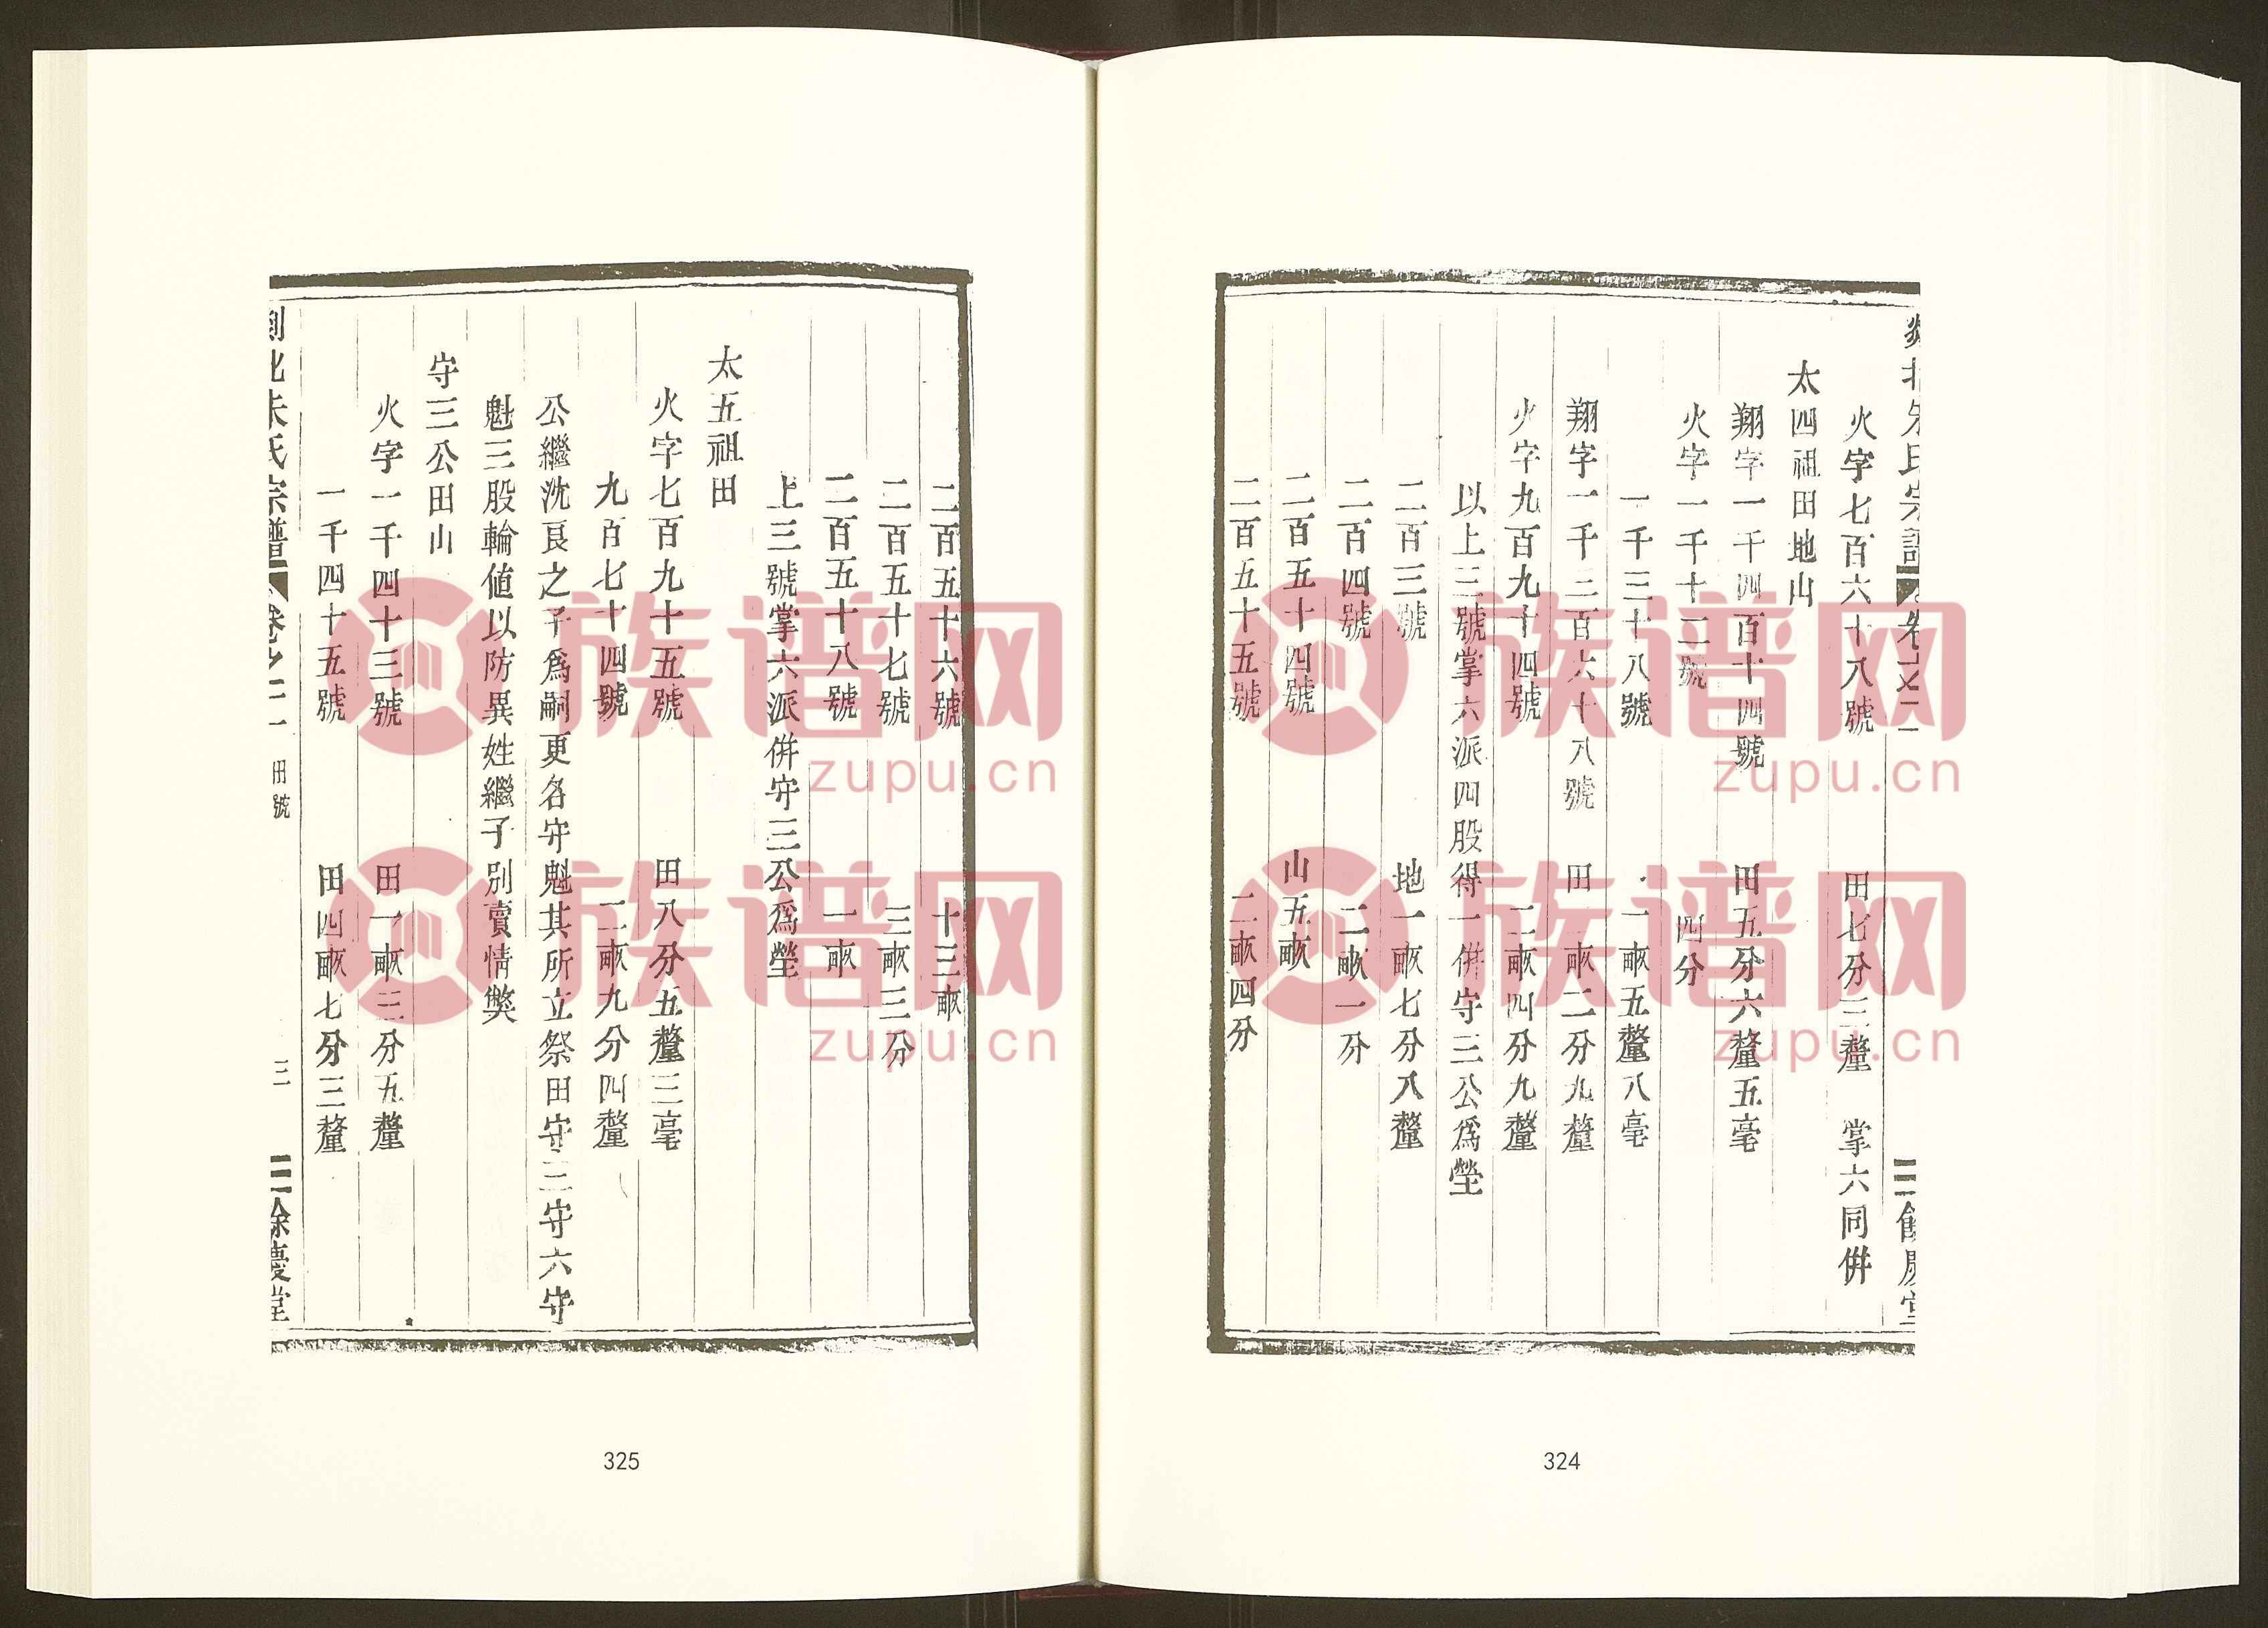 剡北朱氏宗譜 卷之二 餘慶堂
火字七百六十八號 田七分三釐 掌六同併
太四祖田地山
翔字一千四百十四號 田五分六釐五毫
火字一千十二號 四分
一千三十八號 一畝五釐八毫
翔字一千三百六十八號 田一畝二分九釐
火字九百九十四號 二畝四分九釐
以上三號掌六派四股得一併守三公爲塋
二百三號 地一畝七分八釐
二百四號 二畝一分
二百五十四號 山五畝
二百五十五號 二畝四分
324
二百五十六號 十三畝
二百五十七號 三畝三分
二百五十八號 一畝
上三號掌六派併守三公爲塋
太五祖田
火字七百九十五號 田八分五釐三毫
九百七十四號 二畝九分四釐
公繼沈良之子爲嗣更名守魁其所立祭田守三守六守
魁三股輪値以防異姓繼子別賣情獘
守三公田山
火字一千四十三號 田一畝三分五釐
一千四十五號 田四畝七分三釐
剡北朱氏宗譜 卷之二 田號 三 餘慶堂
325
族谱网
zupu.cn
族谱网
zupu.cn
族谱网
zupu.cn
族谱网
zupu.cn